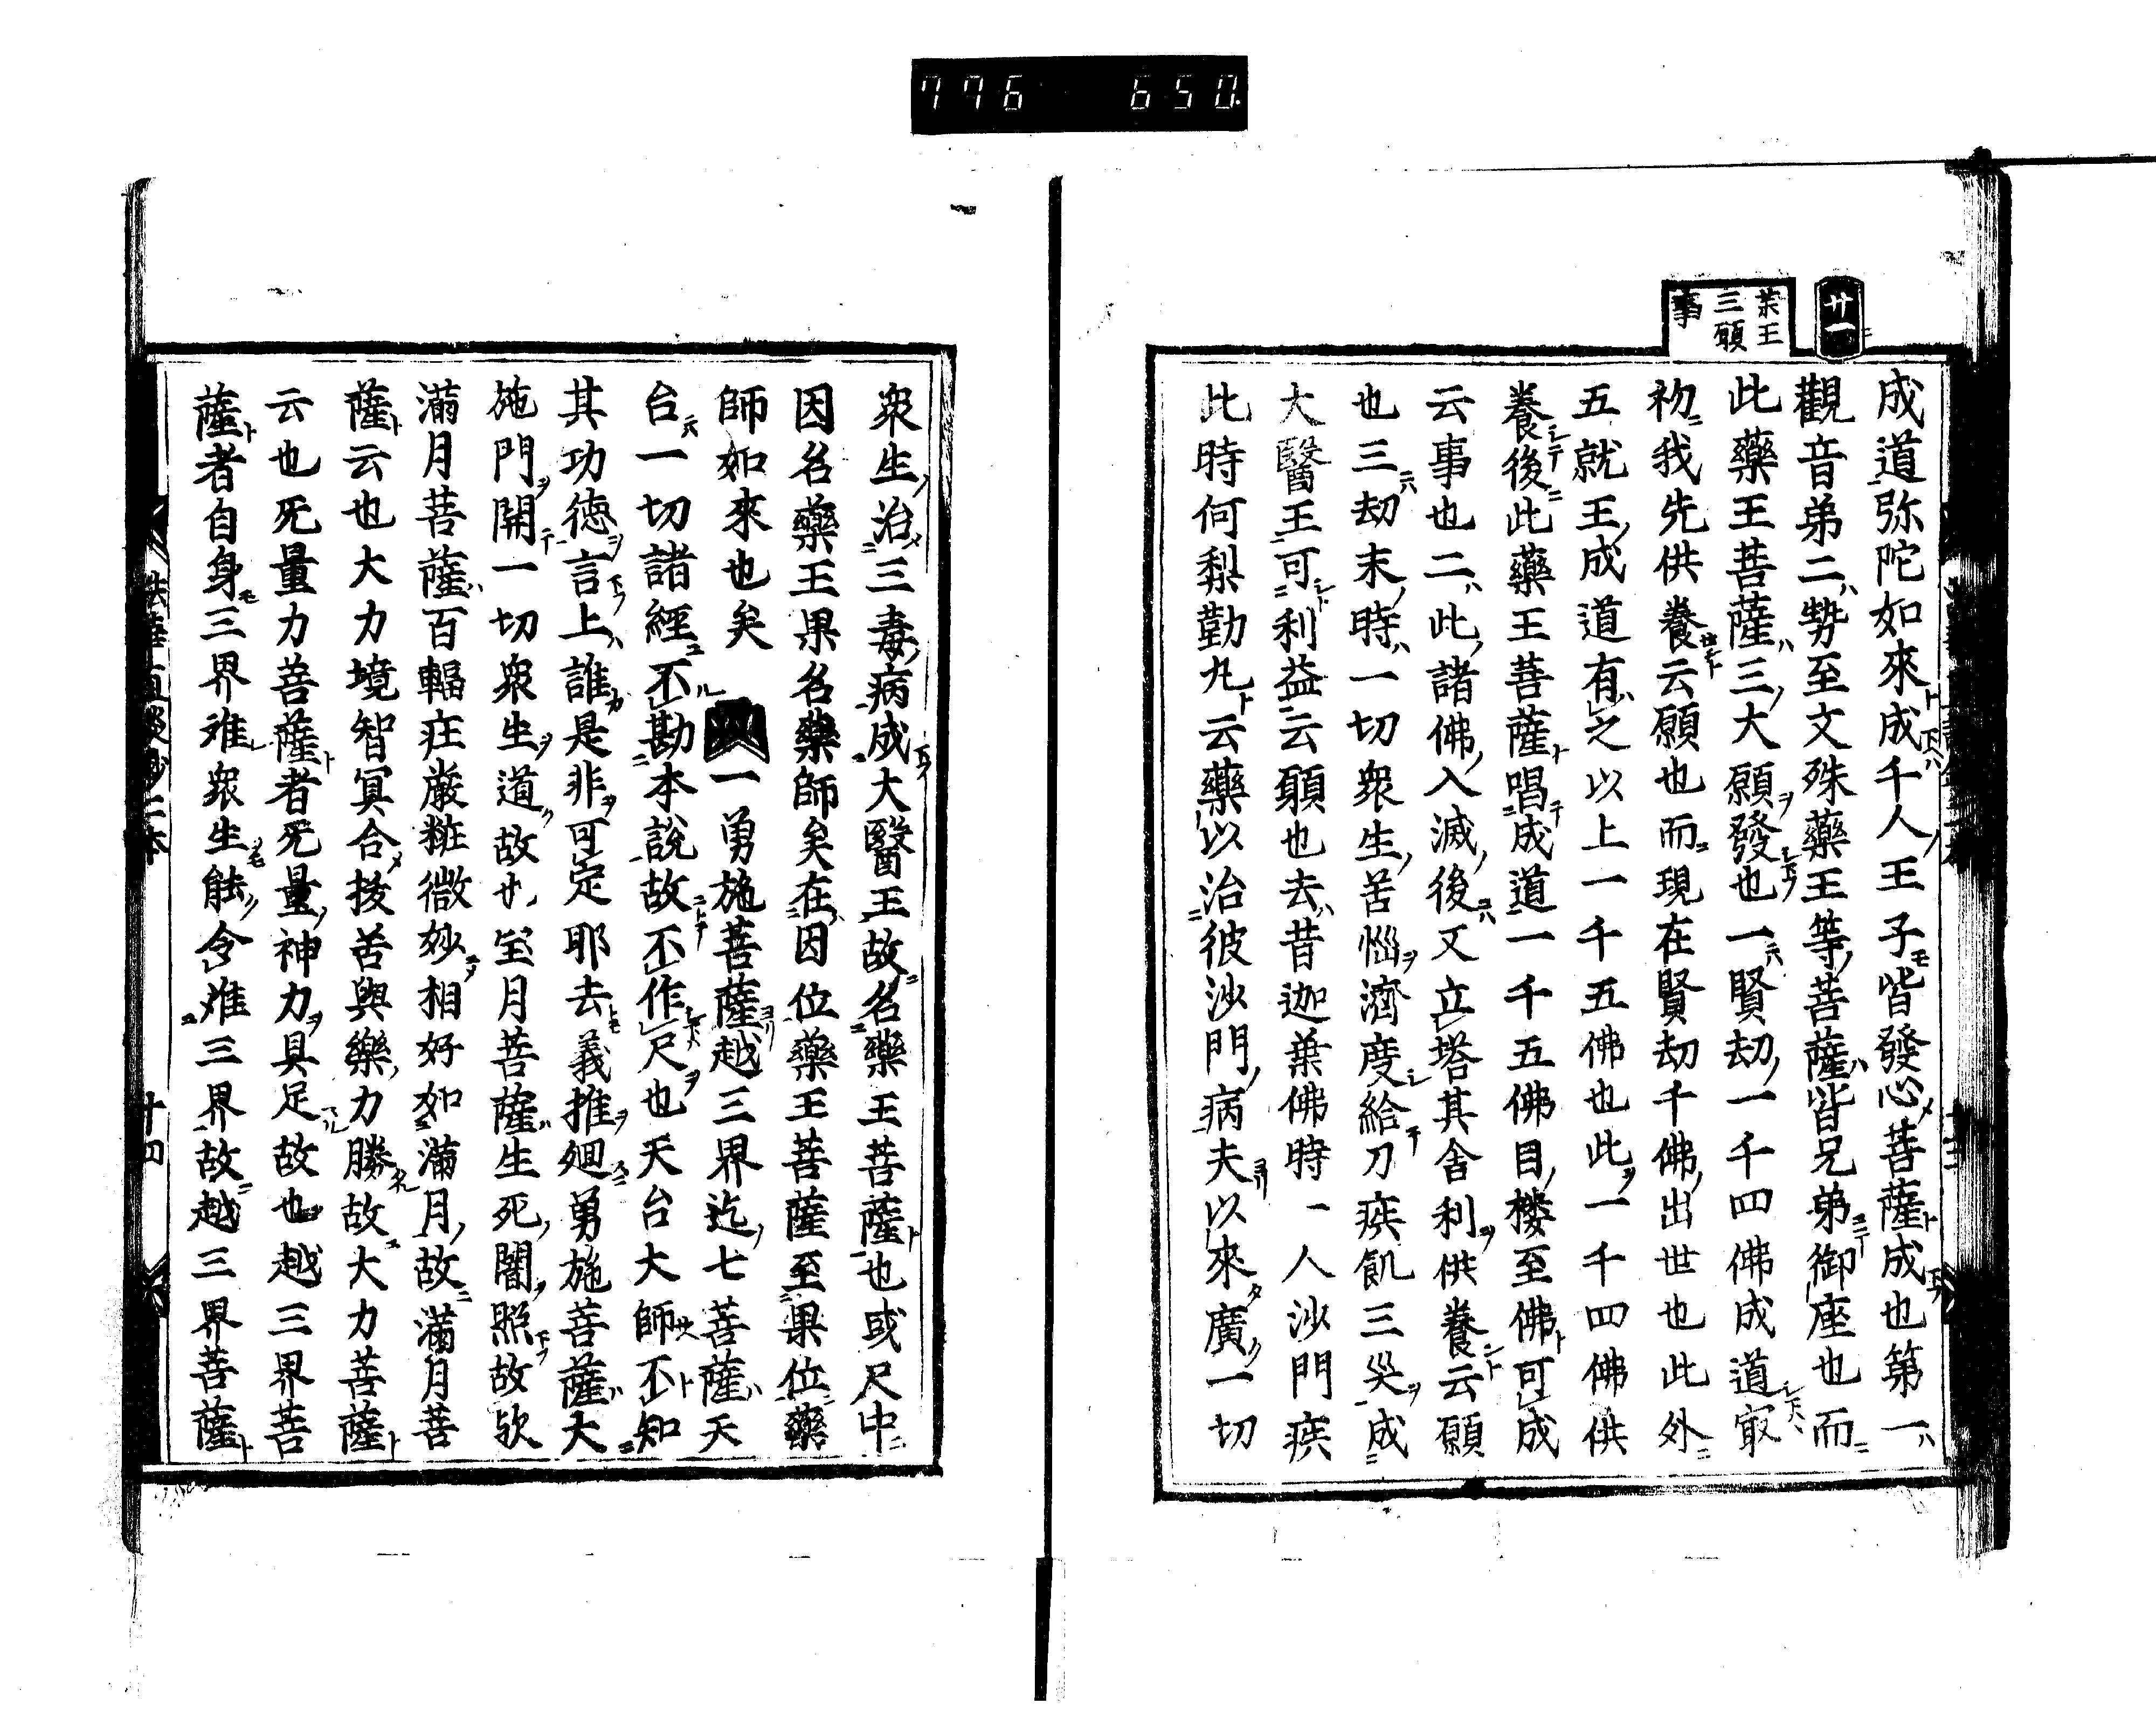 776 650
廿一
薬王
三願
事
成道弥陀如來成千人王子皆發心菩薩成也第一
觀音弟二勢至文殊藥王等菩薩皆兄弟御座也而
此藥王菩薩三大願發也一賢劫一千四佛成道㝡
初我先供養云願也而現在賢劫千佛出世也此外
五就王成道有之以上一千五佛也此一千四佛供
養後此藥王菩薩唱成道一千五佛目楼至佛可成
云事也二此諸佛入滅後又立塔其舎利供養云願
也三劫末時一切衆生苦惱濟度給刀疾飢三災成
大醫王可利益云願也去昔迦葉佛時一人沙門疾
此時何梨勤丸云藥以治彼沙門病夫以來廣一切
衆生治三毒病成大醫王故名藥王菩薩也或尺中
因名藥王果名藥師矣在因位藥王菩薩至果位藥
師如來也矣 一勇施菩薩越三界迄七菩薩天
台一切諸經不勘本説故不作尺也天台大師不知
其功徳言上誰是非可定耶去義推廻勇施菩薩大
施門開一切衆生道故也宝月菩薩生死闇照故欤
滿月菩薩百輻庄厳粧微妙相好如滿月故滿月菩
薩云也大力境智冥合拔苦與樂力勝故大力菩薩
云也无量力菩薩者无量神力具足故也越三界菩
薩者自身三界难衆生能令难三界故越三界菩薩
法華直談鈔二本
十四